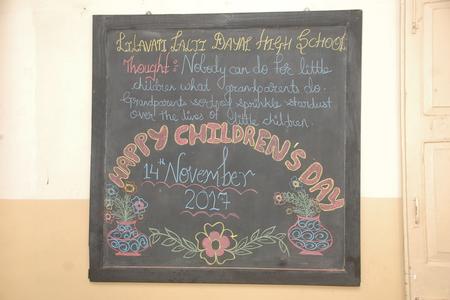 LILAVATI LALJI DAYAL HIGH SCHOOL
Thought : Nobody can do for little
children what grandparents do.
Grandparents sort of sprinkle stardust
over the lives of little children.
HAPPY CHILDREN'S DAY
14th November
2017